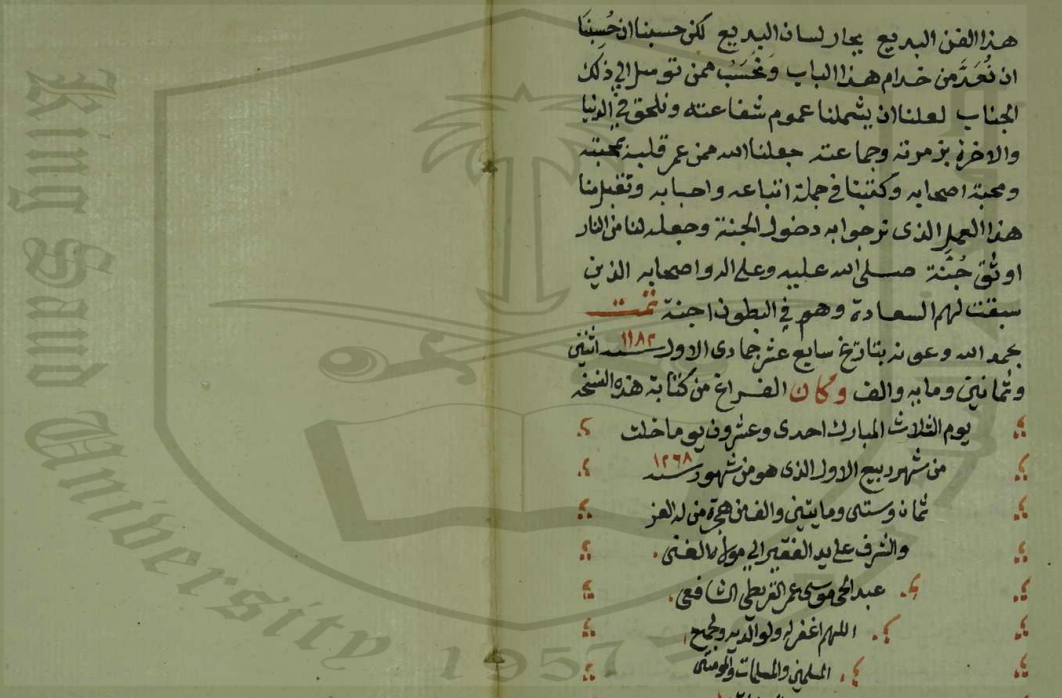 هذا الفن البديع يحار لسان البديع لكن حسبنا ان حُسِبنَا
ان نُعَدَّ من خدام هذا الباب ونُحْسَبُ ممن توسل الي ذلك
الجناب لعلنا ان يشملنا عموم شفاعته ونلحق في الدنيا
والاخرة بزمرته وجماعته جعلنا الله ممن عمر قلبه بمحبته
ومحبة اصحابه وكتبنا في جملة اتباعه واحبابه وتقبل منا
هذا العمل الذى نرجوا به دخول الجنة وجعله لنا من النار
اوثق جُنَّة صلى الله عليه وعلى اله واصحابه الذين
سبقت لهم السعادة وهم في البطون اجنة تمت
بحمد الله وعونه بتاريخ سابع عشر جمادى الاول سنة ١١٨٢ اثنتي
وثمانين ومايه والف وكان الفراغ من كتابة هذه النسخه
يوم الثلاث المبارك احدى وعشرون يوما خلت
من شهر ربيع الاول الذى هو من شهور سنة ١٢٦٨
ثمان وستى ومايتين والف من هجرة من له العز
والشرف على يد الفقير الى مولاه الغنى
عبد الحى موسى عمر القريطى الشافعى
اللهم اغفر له ولوالديه ولجميع
المسلمين والمسلمات والمومنين
King Saud University
1957